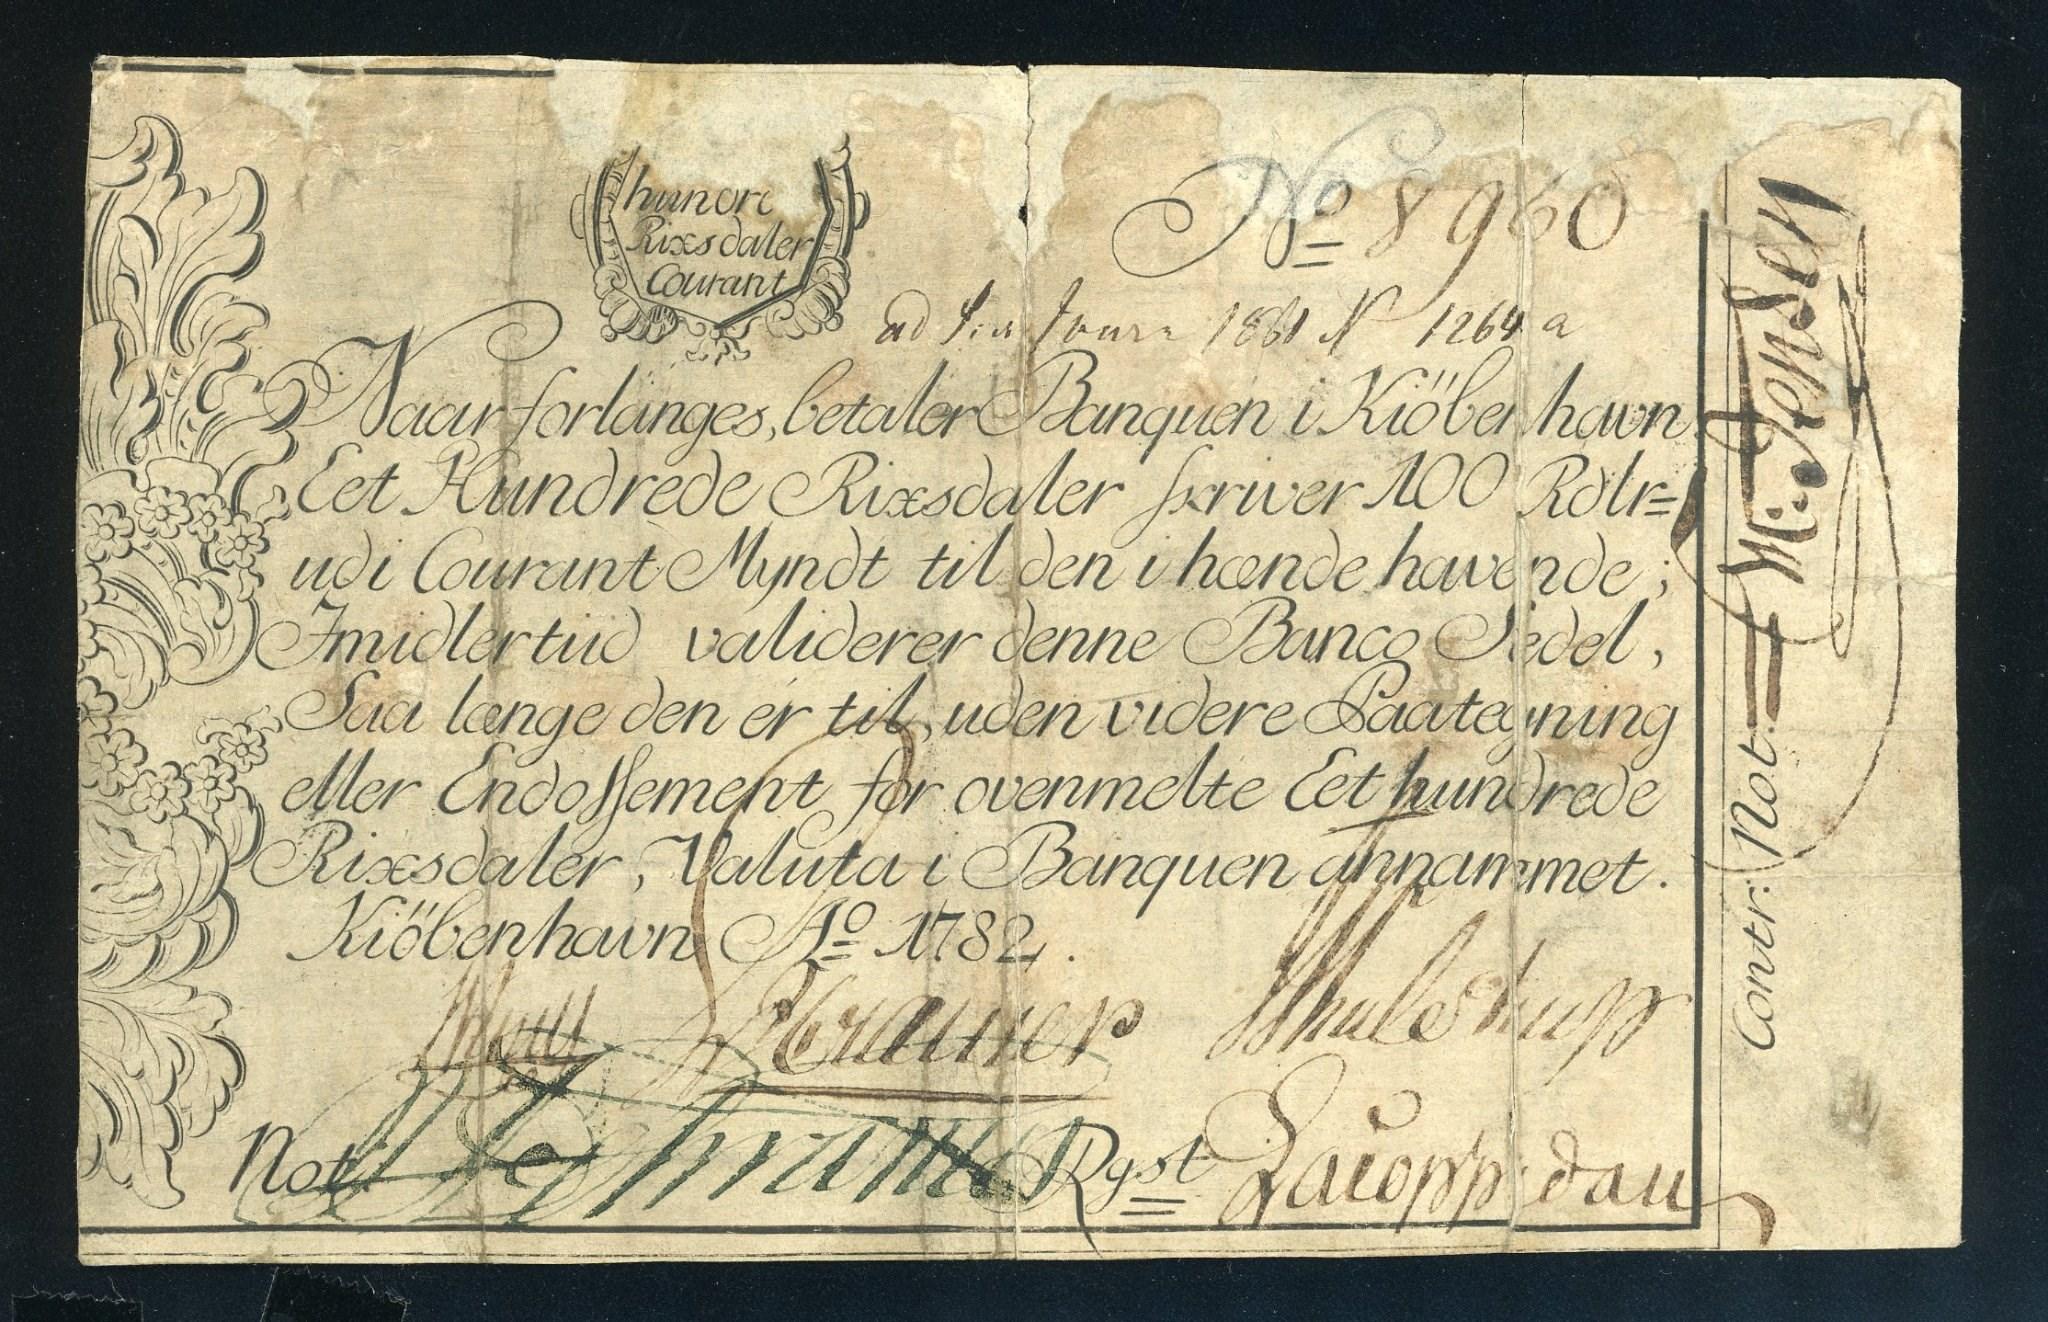 hundre
Rixsdaler
Courant
No 8960
1264 a
Naar forlanges, betaler Banquen i Kiöbenhavn
Eet Hundrede Rixsdaler skriver 100 Rdlr=
udi Courant Myndt til den i hænde havende;
Imidlertiid validerer denne Banco Sedel,
Saa længe den er til, uden videre Paategning
eller Endossement for ovenmelte Eet hundrede
Rixsdaler, Valuta i Banquen annammet.
Kiöbenhavn Ao 1782.
Not Rgst
Contr: Not. M: Jensen